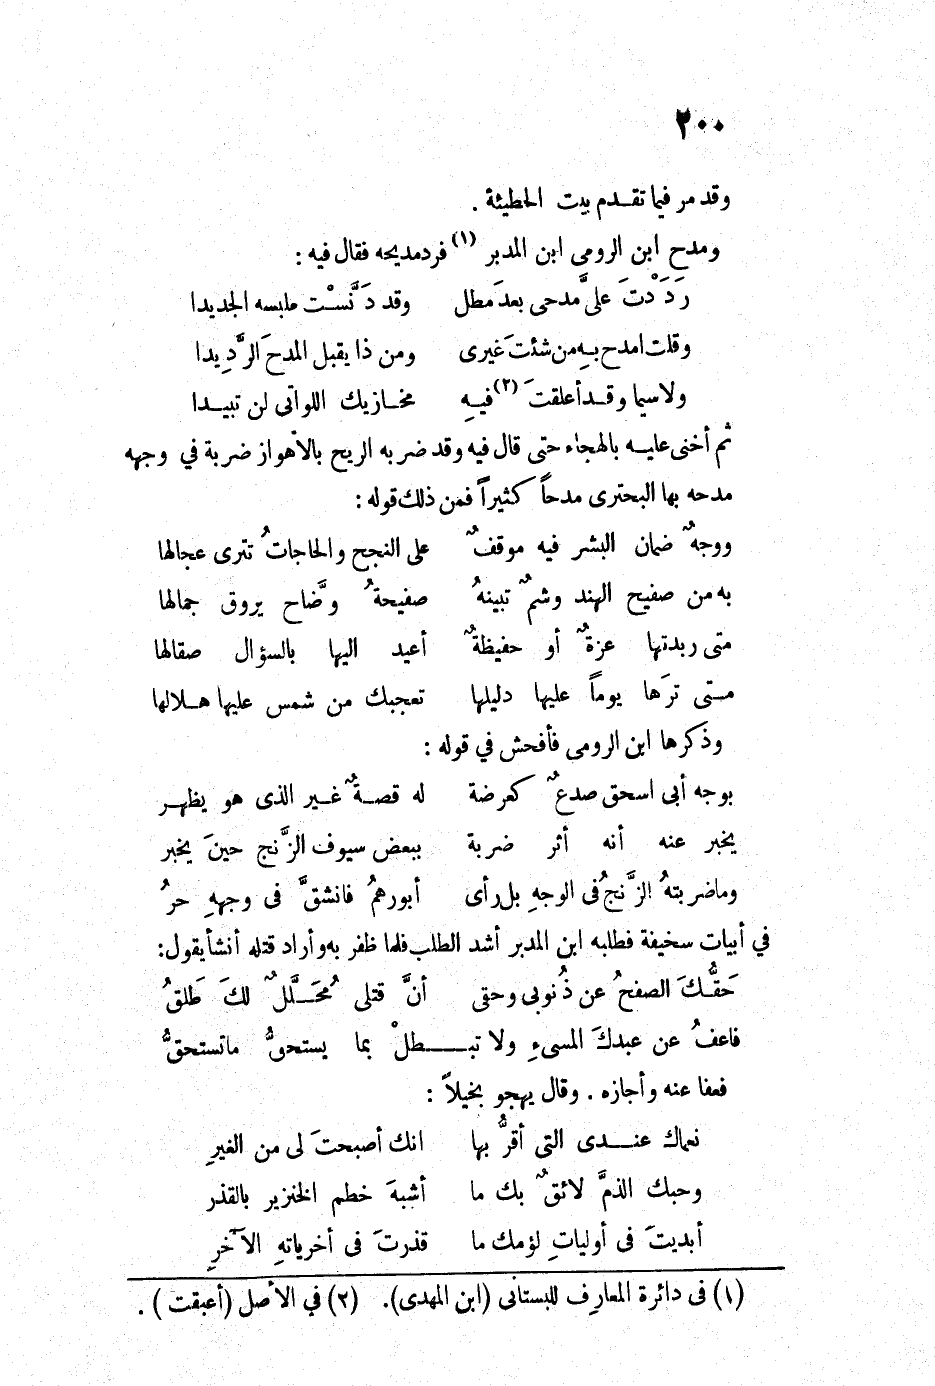 ٢٠٠
وقد مر فيما تقدم بيت الحطيئة .
ومدح ابن الرومى ابن المدبر (١) فرد مديحه فقال فيه :
رَدَدْتَ علىَّ مدحى بعدَ مطل وقد دَنَّسْت ملبسه الجديدا
وقلت امدح بهِ من شئتَ غيرى ومن ذا يقبل المدحَ الرَّدِيدا
ولا سيما وقد أعلقتَ (٢) فيهِ مخازيك اللواتى لن تبيدا
ثم أخنى عليه بالهجاء حتى قال فيه وقد ضربه الريح بالأهواز ضربة في وجهه
مدحه بها البحترى مدحاً كثيراً فمن ذلك قوله :
ووجهٌ ضمان البشر فيه موقفٌ على النجح والحاجاتُ تترى عجالها
به من صفيح الهند وشمٌ تبينهُ صفيحةُ وَضَّاح يروق جمالها
متى ربدتها عزةٌ أو حفيظةٌ أعيد اليها بالسؤال صقالها
متى ترَها يوماً عليها دليلها تعجبك من شمس عليها هلالها
وذكرها ابن الرومى فأفحش في قوله :
بوجه أبى اسحق صدعٌ كعرضة له قصةٌ غير الذى هو يظهر
يخبر عنه أنه أثر ضربة ببعض سيوف الزَّنج حينَ يخبر
وما ضربتهُ الزَّنجُ فى الوجهِ بل رأى أبورهمُ فانشقَّ فى وجههِ حرُ
في أبيات سخيفة فطلبه ابن المدبر أشد الطلب فلما ظفر به وأراد قتله أنشأ يقول:
حَقُّكَ الصفحُ عن ذُنوبى وحتى أنَّ قتلى مُحَلَّلٌ لكَ طَلقُ
فاعفُ عن عبدكَ المسىءِ ولا تبـطلْ بما يستحقُّ ماتستحقُّ
فعفا عنه وأجازه . وقال يهجو بخيلاً :
نعماك عندى التى أقرُّ بها انك أصبحتَ لى من الغيرِ
وحبك الذمَّ لائقٌ بك ما أشبهَ خطم الخنزير بالقذر
أبديتَ فى أولياتِ لؤمك ما قذرتَ فى أخرياتهِ الآخرِ
(١) فى دائرة المعارف للبستانى (ابن المهدى). (٢) في الأصل (أعبقت) .